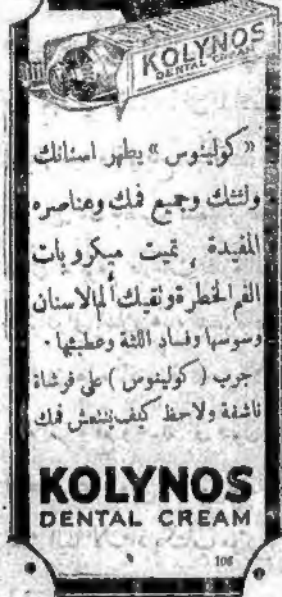 KOLYNOS
DENTAL CREAM
«كولينوس» يطهر اسنانك
ولثتك وجميع فمك وعناصره
المفيدة تميت ميكروبات
الفم الخطرة وتقيك ألم الاسنان
وسوسها وفساد اللثة وعطبها ٠
جرب (كولينوس) على فرشاة
ناشفة ولاحظ كيف ينتعش فمك
KOLYNOS
DENTAL CREAM
106